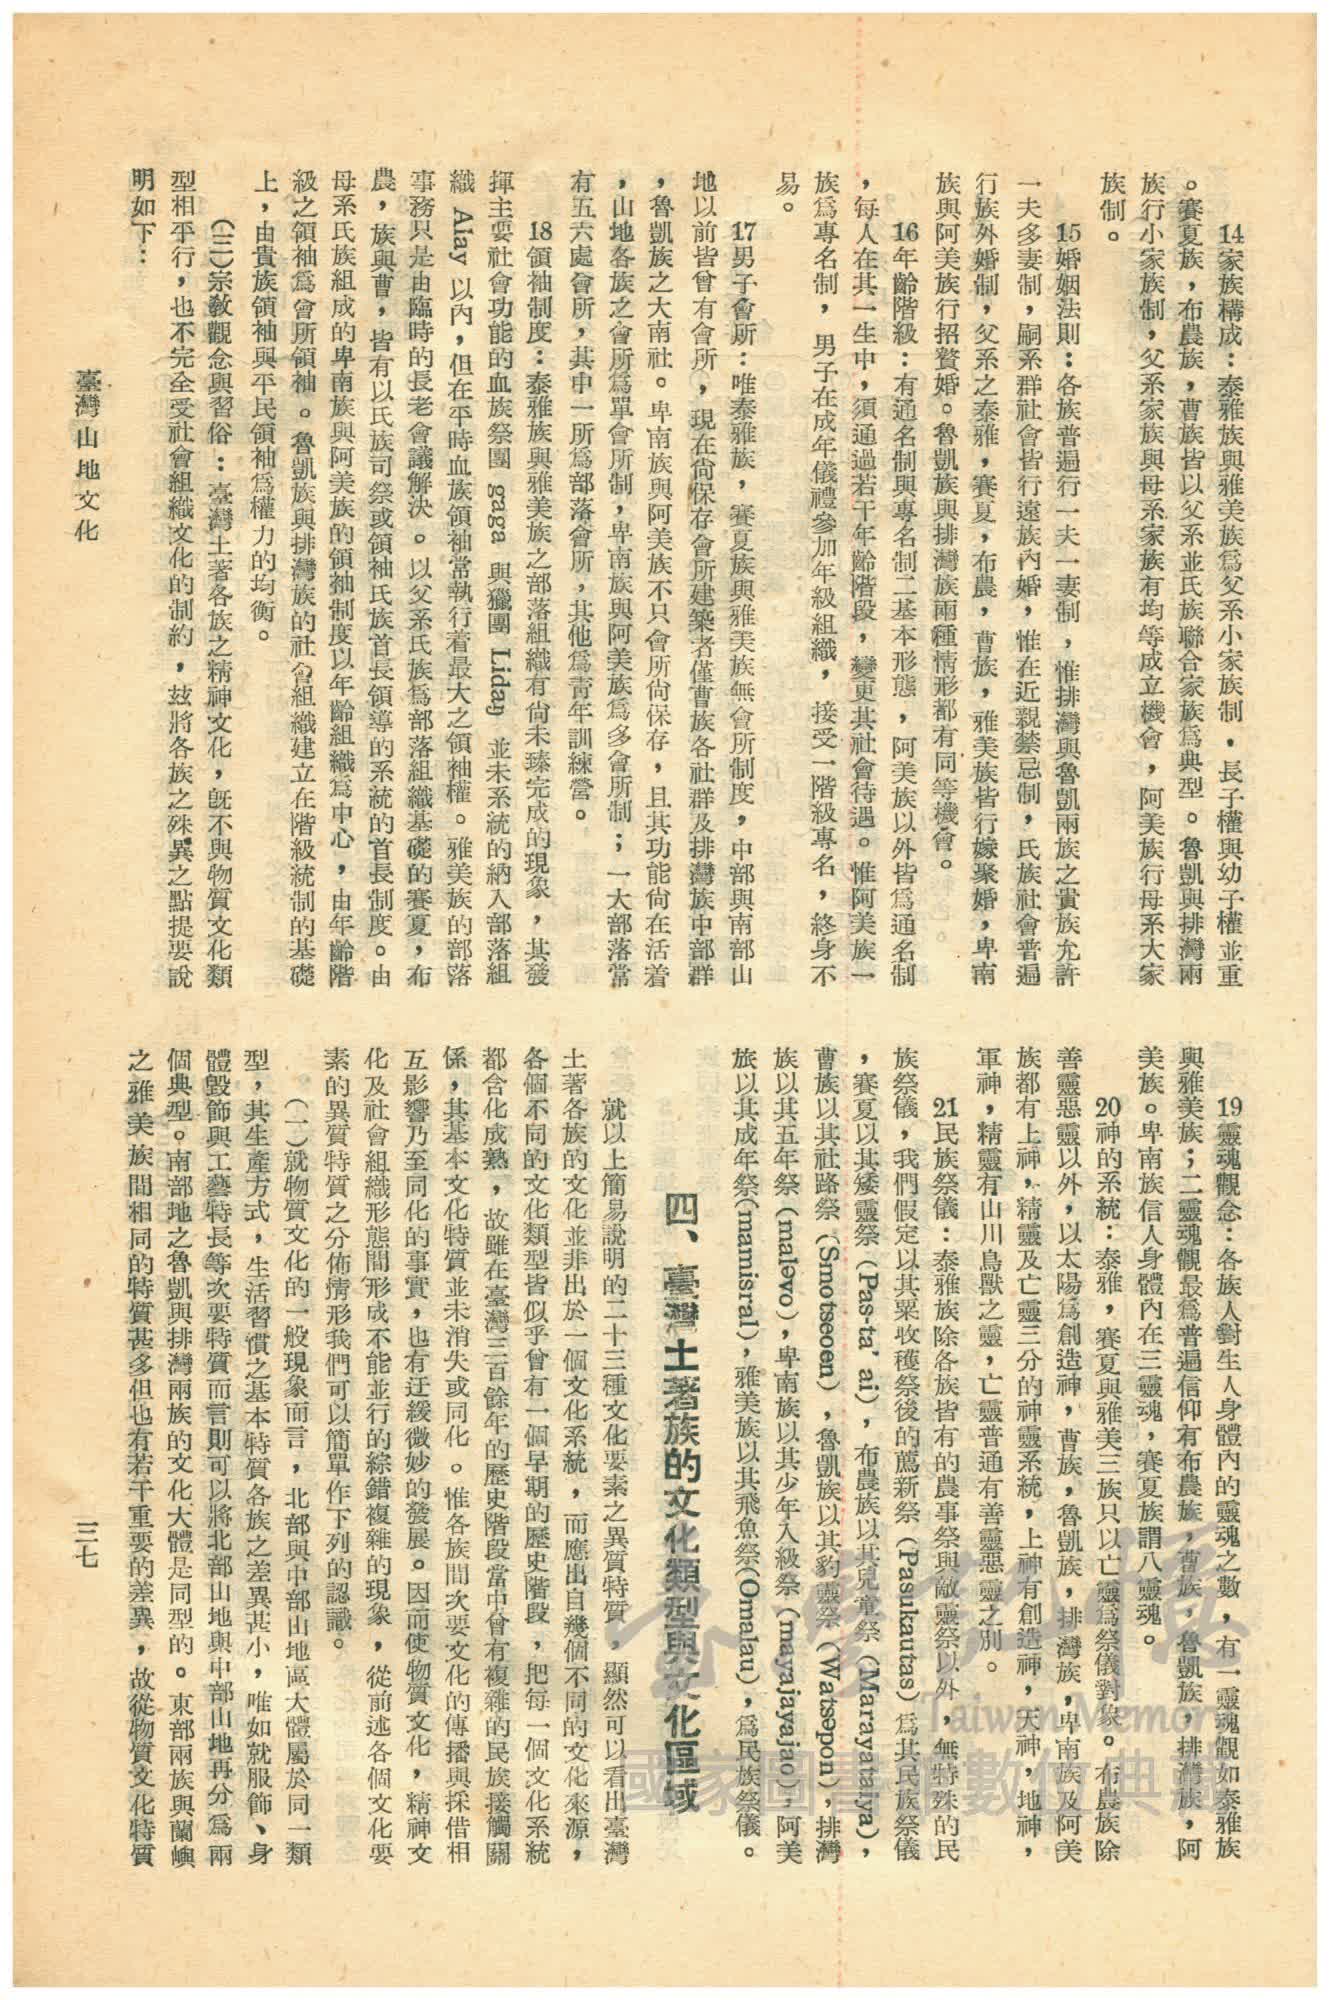 14家族構成:泰雅族與雅美族爲父系小家族制,長子權與幼子權並重
。賽夏族,布農族,曹族皆以父系並氏族聯合家族爲典型。魯凱與排灣兩
族行小家族制,父系家族與母系家族有均等成立機會,阿美族行母系大家
族制。
15婚姻法則:各族普遍行一夫一妻制,惟排灣與魯凱兩族之貴族允許
一夫多妻制,嗣系群社會皆行遠族內婚,惟在近親禁忌制,氏族社會普遍
行族外婚制,父系之泰雅,賽夏,布農,曹族,雅美族皆行嫁聚婚,卑南
族與阿美族行招贅婚。魯凱族與排灣族兩種情形都有同等機會。
16年齡階級:有通名制與專名制二基本形態,阿美族以外皆爲通名制
,每人在其一生中,須通過若干年齡階段,變更其社會待遇。惟阿美族一
族爲專名制,男子在成年儀禮參加年級組織,接受一階級專名,終身不
易。
17男子會所:唯泰雅族,賽夏族與雅美族無會所制度,中部與南部山
地以前皆曾有會所,現在尙保存會所建築者僅曹族各社群及排灣族中部群
,魯凱族之大南社。卑南族與阿美族不只會所尙保存,且其功能尙在活着
,山地各族之會所爲單會所制,卑南族與阿美族爲多會所制;一大部落常
有五六處會所,其中一所爲部落會所,其他爲靑年訓練營。
18領袖制度:泰雅族與雅美族之部落組織有尙未臻完成的現象,其發
揮主要社會功能的血族祭團 gaga 與獵團 Liday 並未系統的納入部落組
織 Alay 以內,但在平時血族領袖常執行着最大之領袖權。雅美族的部落
事務只是由臨時的長老會議解決。以父系氏族爲部落組織基礎的賽夏,布
農,族與曹,皆有以氏族司祭或領袖氏族首長領導的系統的首長制度。由
母系氏族組成的卑南族與阿美族的領袖制度以年齡組織爲中心,由年齡階
級之領袖爲會所領袖。魯凱族與排灣族的社會組織建立在階級統制的基礎
上,由貴族領袖與平民領袖爲權力的均衡。
(三)宗敎觀念與習俗:臺灣土著各族之精神文化,旣不與物質文化類
型相平行,也不完全受社會組織文化的制約,玆將各族之殊異之點提要說
明如下:
臺灣山地文化
19靈魂觀念:各族人對生人身體內的靈魂之數,有一靈魂觀如泰雅族
與雅美族;二靈魂觀最爲普遍信仰有布農族,曹族,魯凱族,排灣族,阿
美族。卑南族信人身體內在三靈魂,賽夏族謂八靈魂。
20神的系統:泰雅,賽夏與雅美三族只以亡靈爲祭儀對象。布農族除
善靈惡靈以外,以太陽爲創造神,曹族,魯凱族,排灣族,卑南族及阿美
族都有上神,精靈及亡靈三分的神靈系統,上神有創造神,天神,地神,
軍神,精靈有山川鳥獸之靈,亡靈普通有善靈惡靈之別。
21民族祭儀:泰雅族除各族皆有的農事祭與敵靈祭以外,無特殊的民
族祭儀,我們假定以其粟收穫祭後的薦新祭(Pasukautas)爲其民族祭儀
,賽夏以其矮靈祭(Pas-ta' ai),布農族以其兒童祭(Marayataiya),
曹族以其社路祭(Smotseoen),魯凱族以其豹靈祭(Watsəpon),排灣
族以其五年祭(maləvo),卑南族以其少年入級祭(mayajayajao),阿美
旅以其成年祭(mamisral),雅美族以其飛魚祭(Omalau),爲民族祭儀。
四、臺灣土著族的文化類型與文化區域
就以上簡易說明的二十三種文化要素之異質特質,顯然可以看出臺灣
土著各族的文化並非出於一個文化系統,而應出自幾個不同的文化來源,
各個不同的文化類型皆似乎曾有一個早期的歷史階段,把每一個文化系統
都含化成熟,故雖在臺灣三百餘年的歷史階段當中曾有複雜的民族接觸關
係,其基本文化特質並未消失或同化。惟各族間次要文化的傳播與採借相
互影響乃至同化的事實,也有迂緩微妙的發展。因而使物質文化,精神文
化及社會組織形態間形成不能並行的綜錯複雜的現象,從前述各個文化要
素的異質特質之分佈情形我們可以簡單作下列的認識。
(一)就物質文化的一般現象而言,北部與中部山地區大體屬於同一類
型,其生產方式,生活習慣之基本特質各族之差異甚小,唯如就服飾、身
體毀飾與工藝特長等次要特質而言則可以將北部山地與中部山地再分爲兩
個典型。南部地之魯凱與排灣兩族的文化大體是同型的。東部兩族與蘭嶼
之雅美族間相同的特質甚多但也有若干重要的差異,故從物質文化特質
三七
臺灣記憶
Taiwan Memory
國家圖書館數位典藏